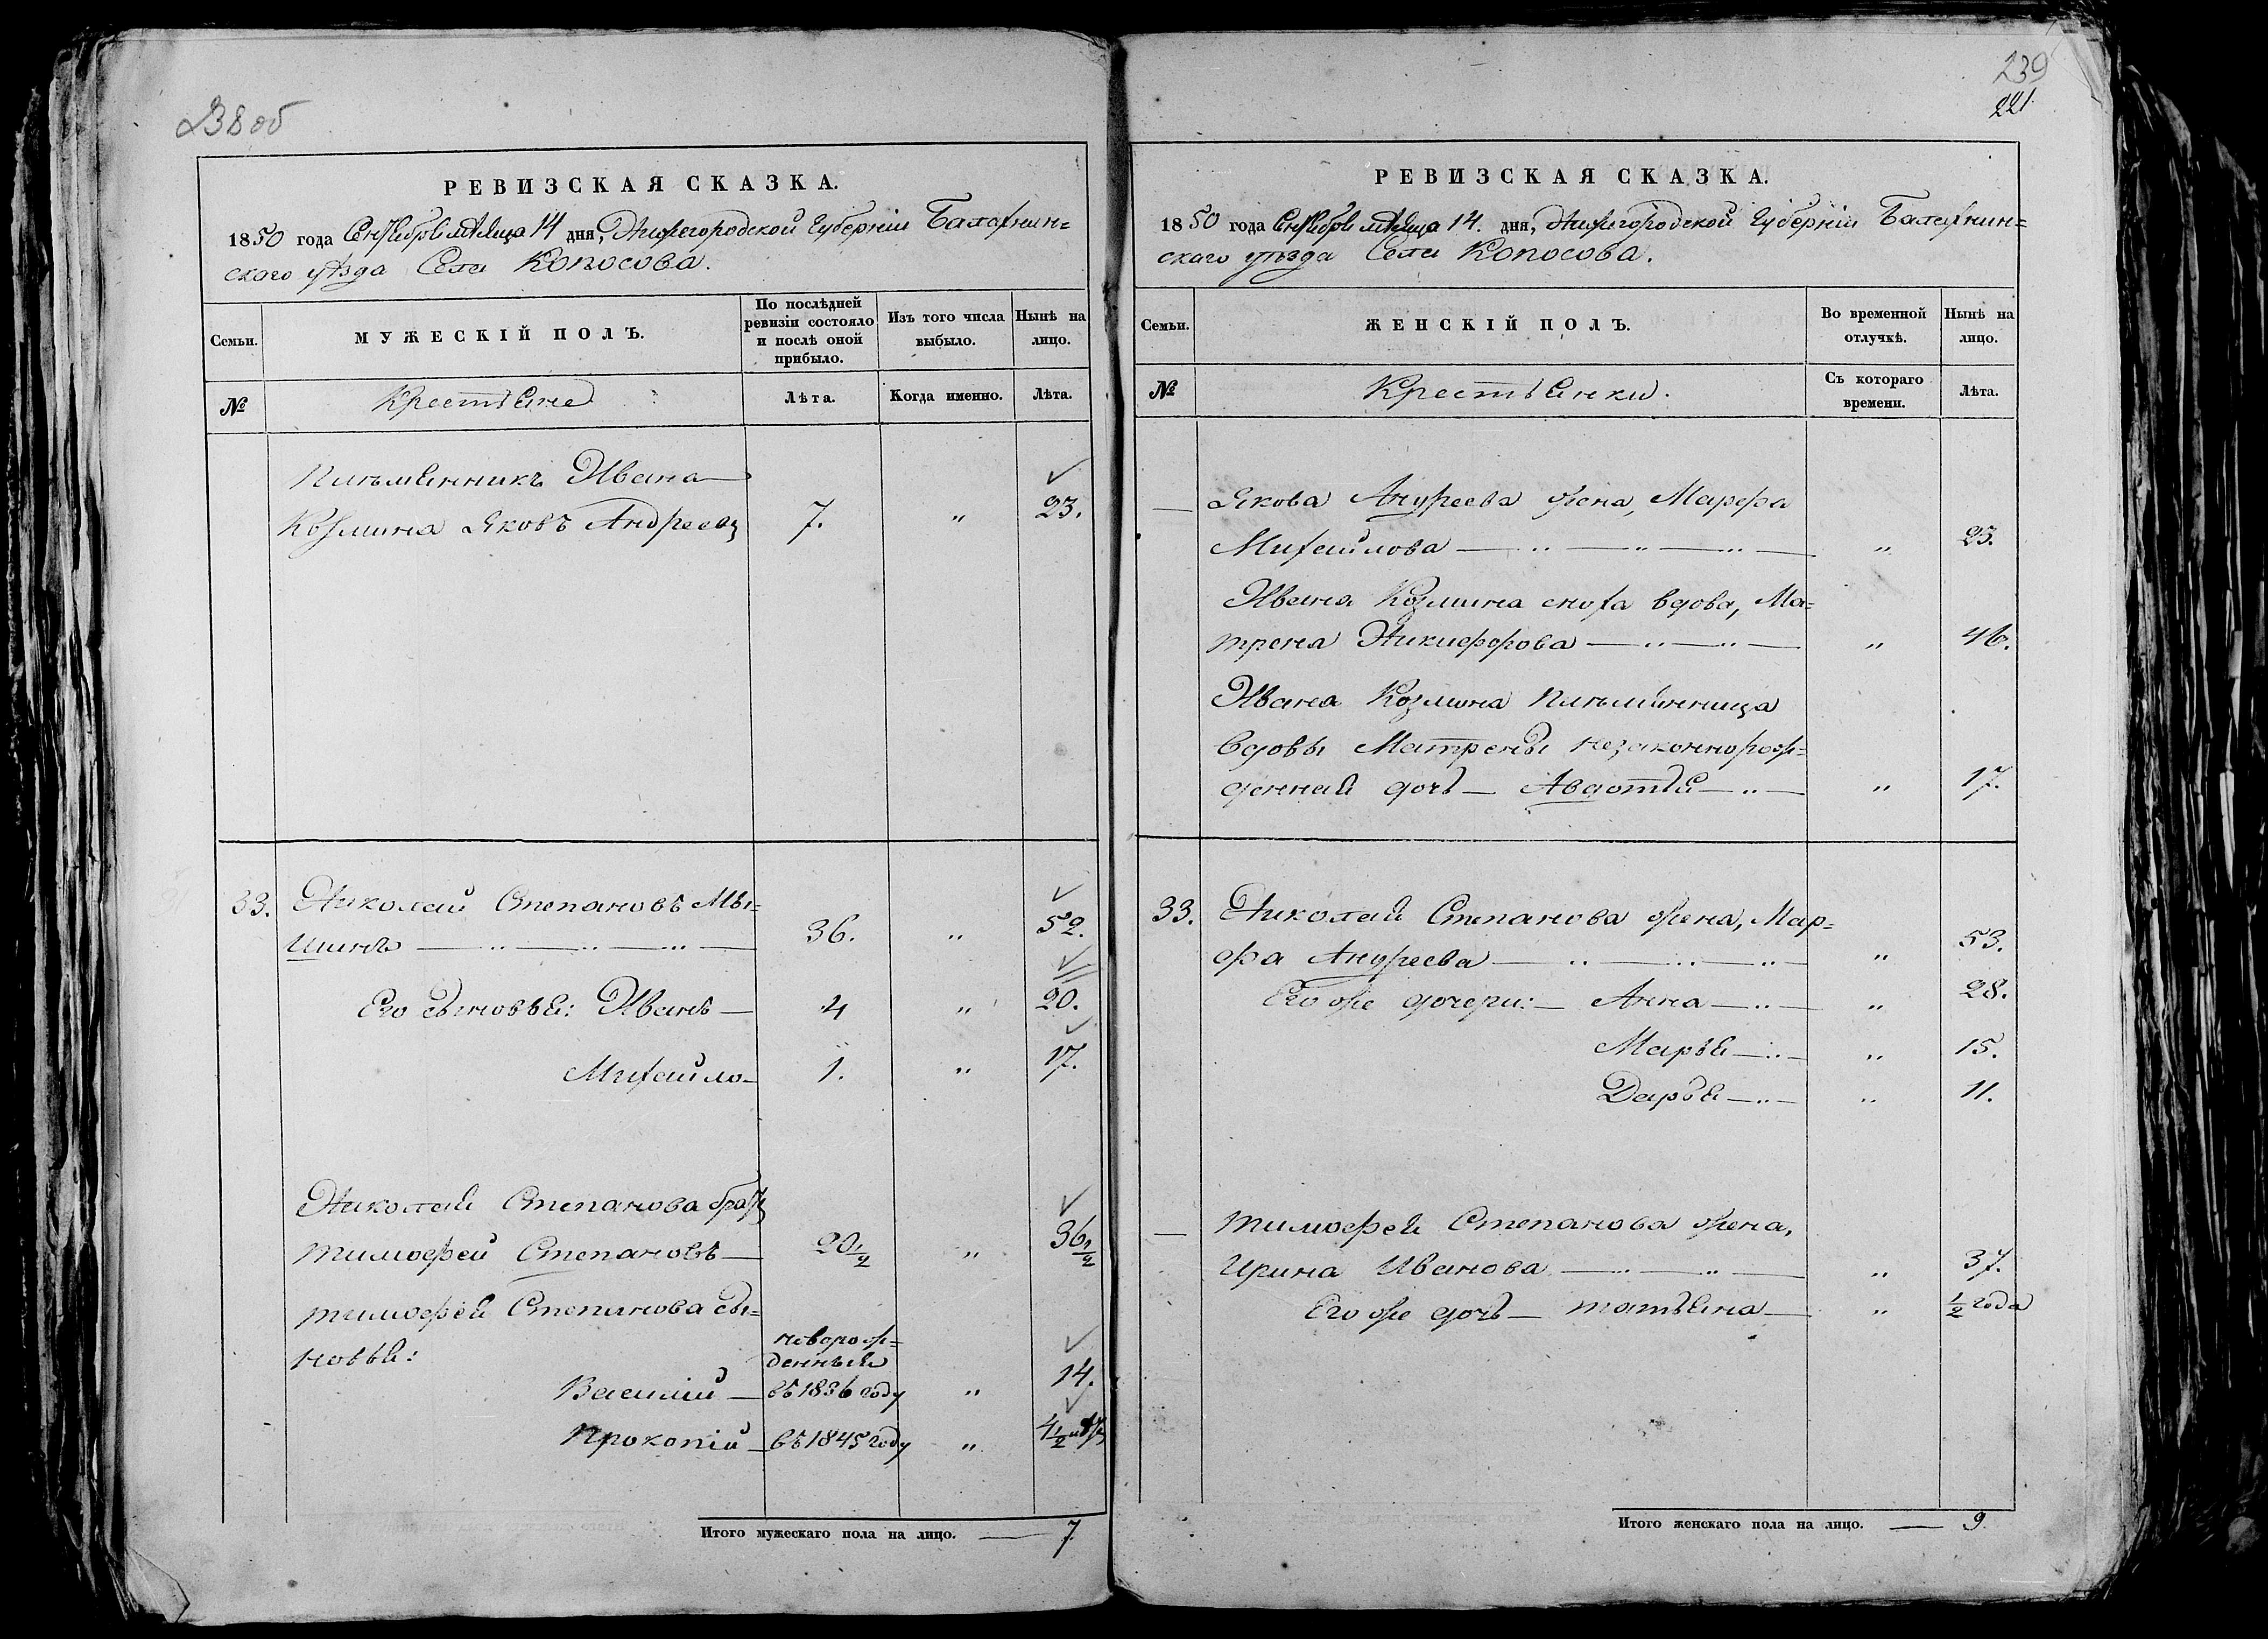 238 об
РЕВИЗСКАЯ СКАЗКА.
1850 года Сентября мѣсяца 14 дня, Нижегородской Губерніи Балахнин=
скаго уѣзда Села Копосова.
Семьи.
МУЖЕСКІЙ ПОЛЪ.
По послѣдней ревизіи состояло и послѣ оной прибыло.
Изъ того числа выбыло.
Нынѣ на лицо.
№
Крестьяне
Лѣта.
Когда именно.
Лѣта.
Племянникъ Ивана
Козмина Яковъ Андреевъ 7. " 23.
33. Николай Степановъ Мы=
шинъ 36. " 52.
Его сыновья: Иванъ 4 " 20.
Михайло 1. " 17.
Николая Степанова братъ
Тимофей Степановъ 20 1/2 " 36 1/2
Тимофея Степанова сы=
новья:
новорож=
денныя
Василій въ 1836 году " 14.
Прокопій въ 1845 году " 4 1/2 лѣтъ
Итого мужескаго пола на лицо. — 7.
239
221
РЕВИЗСКАЯ СКАЗКА.
1850 года Сентября мѣсяца 14. дня, Нижегородской Губерніи Балахнин=
скаго уѣзда Села Копосова.
Семьи.
ЖЕНСКІЙ ПОЛЪ.
Во временной отлучкѣ.
Нынѣ на лицо.
№
Крестьянки.
Съ котораго времени.
Лѣта.
— Якова Андреева жена, Марфа
Михайлова " 23.
Ивана Козмина сноха вдова, Ма=
трена Никифорова " 46.
Ивана Козмина племянница
вдовы Матрены незаконнорож=
денная дочь — Авдотья " 17.
33. Николая Степанова жена, Мар=
фа Андреева " 53.
Его же дочери: — Анна " 28.
Марья " 15.
Дарья " 11.
— Тимофея Степанова жена,
Ирина Иванова " 37.
Его же дочь — Татьяна " 1/2 года
Итого женскаго пола на лицо. — 9.